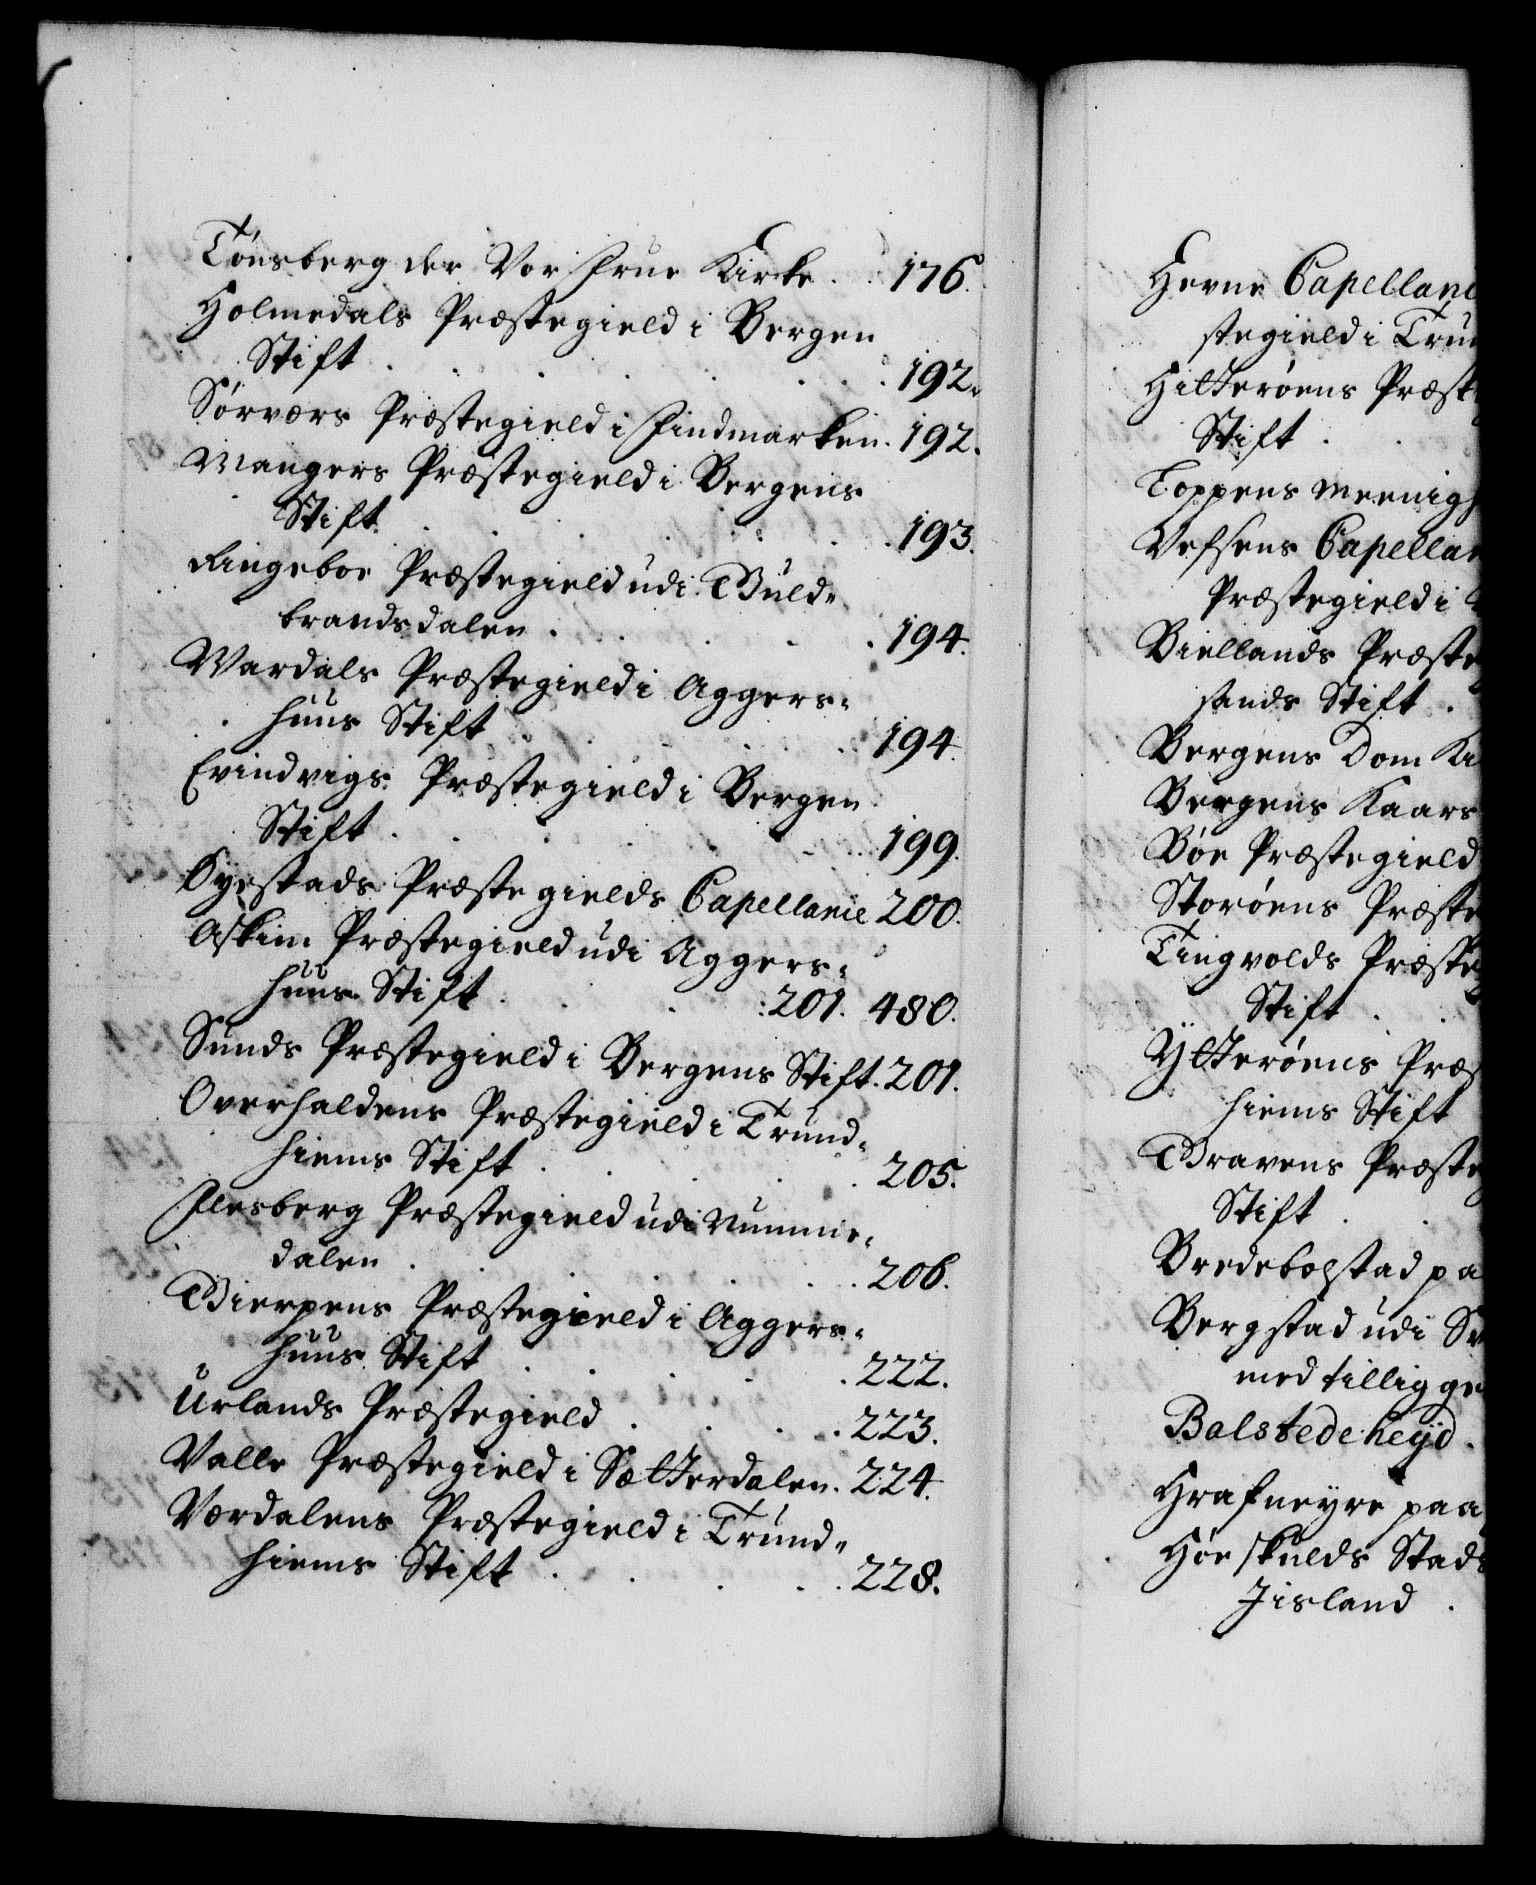 Tönsberg der Vor Frue Kirke . . 176.
Holmedals Præstegield i Bergen
Stift . . . . . . . 192.
Sörværs Præstegield i Findmarken. 192.
Mangers Præstegield i Bergens
Stift . . . . . . 193.
Ringeboe Præstegield udi Guld=
brandsdalen . . . . . 194.
Wardals Præstegield i Aggers=
huus Stift . . . . 194.
Evindvigs Præstegield i Bergen
Stift . . . . . 199.
Öyestads Præstegields Capellanie 200.
Askim Præstegield udi Aggers=
huus Stift . . . :201. 480.
Sunds Præstegield i Bergens Stift. 201.
Overhaldens Præstegield i Trund=
hiems Stift . . . . 205.
Flesberg Præstegield udi Numme=
dalen . . . . . 206.
Gierpens Præstegield i Aggers=
huus Stift . . . . . 222.
Urlands Præstegield . . . . 223.
Valle Præstegield i Sætterdalen. 224.
Værdalens Præstegield i Trund=
hiems Stift . . . . . 228.
Hevne Capellani
stegield i Trun
Hitteröens Præst
Stift . .
Toppens Meenigh
Vefsens Capellan
Præstegield i
Biellands Præste
sands Stift .
Bergens Dom Ki
Bergens Kaars
Böe Præstegield
Storöens Præste
Tingvolds Præste
Stift . .
Ytteröens Præs
hiems Stift
Gravens Præste
Stift . .
Bredebolstad pa
Bergstad udi S
med tilligge
Balstedeheyd .
Hrafneyre paa
Höeskulds Stads
Jisland .